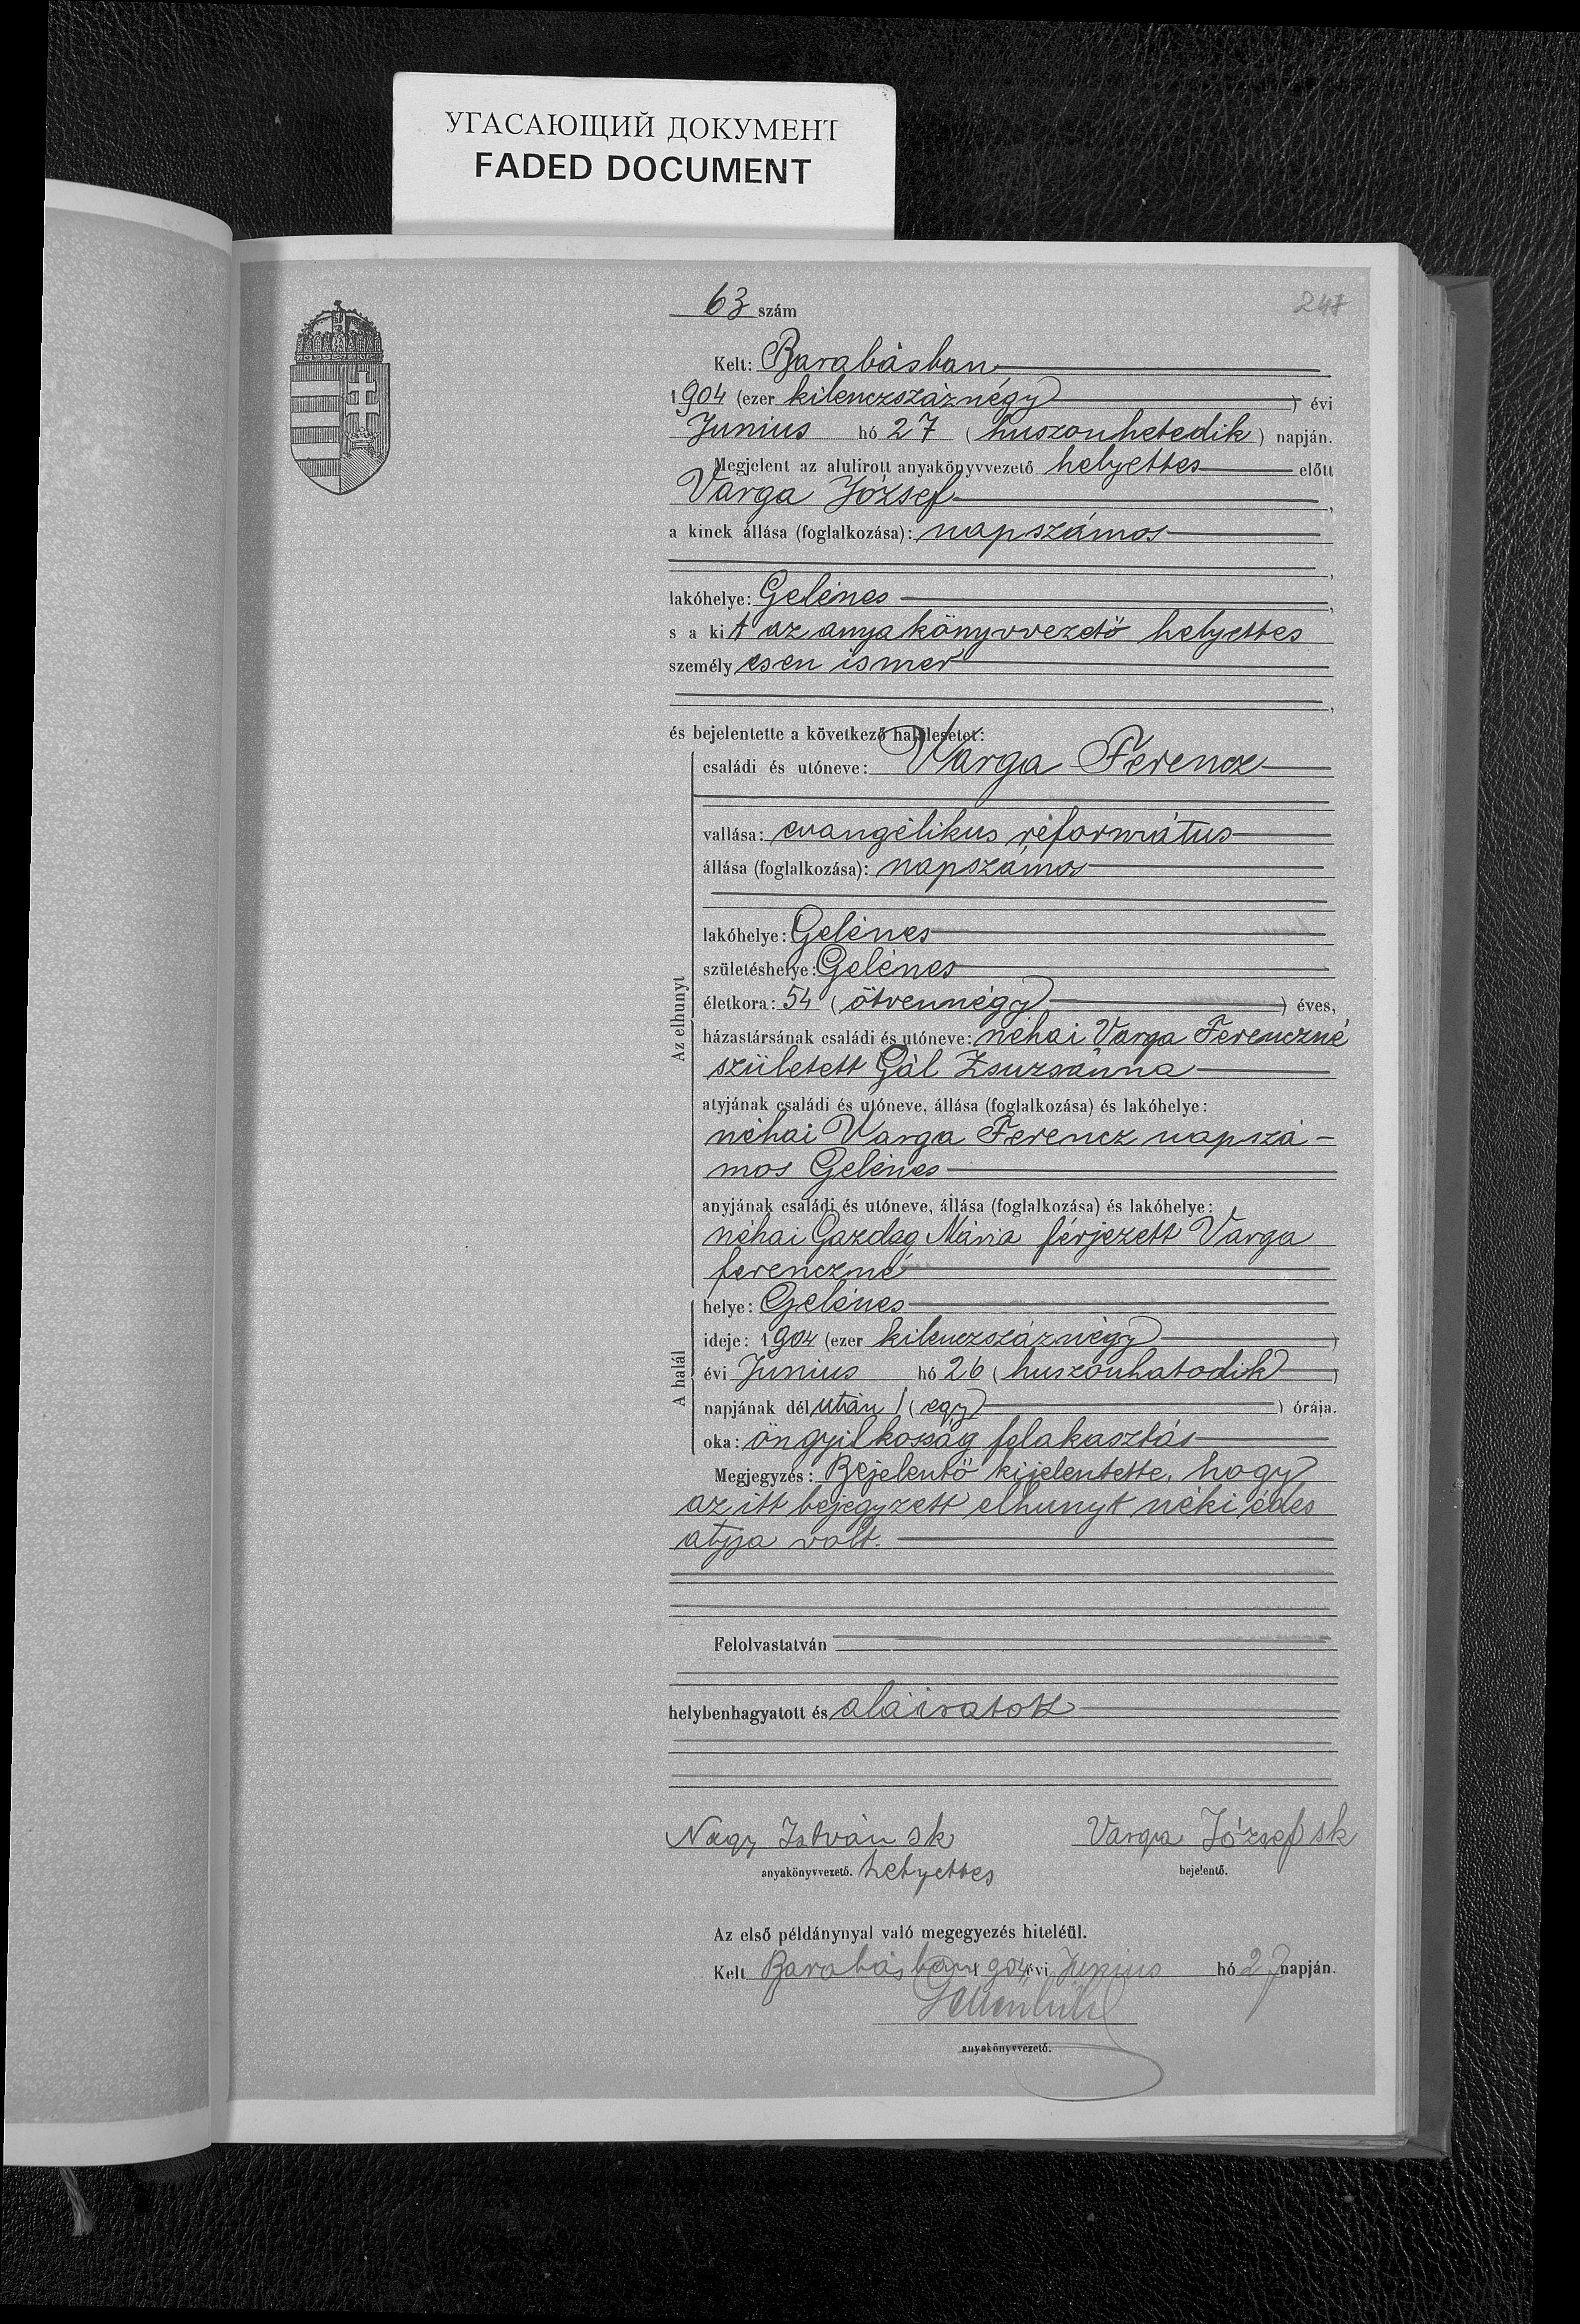 УГАСАЮЩИЙ ДОКУМЕНТ
FADED DOCUMENT
247
63 szám
Kelt: Barabásban
1904 (ezer kilenczszáznégy) évi
Junius hó 27 (huszonhetedik) napján.
Megjelent az alulirott anyakönyvvezető helyettes előtt
Varga József,
a kinek állása (foglalkozása): napszámos,
lakóhelye: Gelénes,
s a kit az anyakönyvvezető helyettes
személyesen ismer,
és bejelentette a következő halálesetet:
Az elhunyt
családi és utóneve: Varga Ferencz
vallása: evangélikus református
állása (foglalkozása): napszámos
lakóhelye: Gelénes
születéshelye: Gelénes
életkora: 54 (ötvennégy) éves,
házastársának családi és utóneve: néhai Varga Ferenczné
született Gál Zsuzsánna
atyjának családi és utóneve, állása (foglalkozása) és lakóhelye:
néhai Varga Ferencz napszá-
mos Gelénes
anyjának családi és utóneve, állása (foglalkozása) és lakóhelye:
néhai Gazdag Mária férjezett Varga
ferenczné
A halál
helye: Gelénes
ideje: 1904 (ezer kilenczszáznégy)
évi Junius hó 26 (huszonhatodik)
napjának délután 1 (egy) órája.
oka: öngyilkosság felakasztás
Megjegyzés: Bejelentő kijelentette, hogy
az itt bejegyzett elhunyt néki édes
atyja volt.
Felolvastatván
helybenhagyatott és aláiratott
Nagy István sk Varga József sk
anyakönyvvezető. helyettes bejelentő.
Az első példánynyal való megegyezés hiteléül.
Kelt Barabásban 1904 évi Junius hó 27 napján.
anyakönyvvezető.